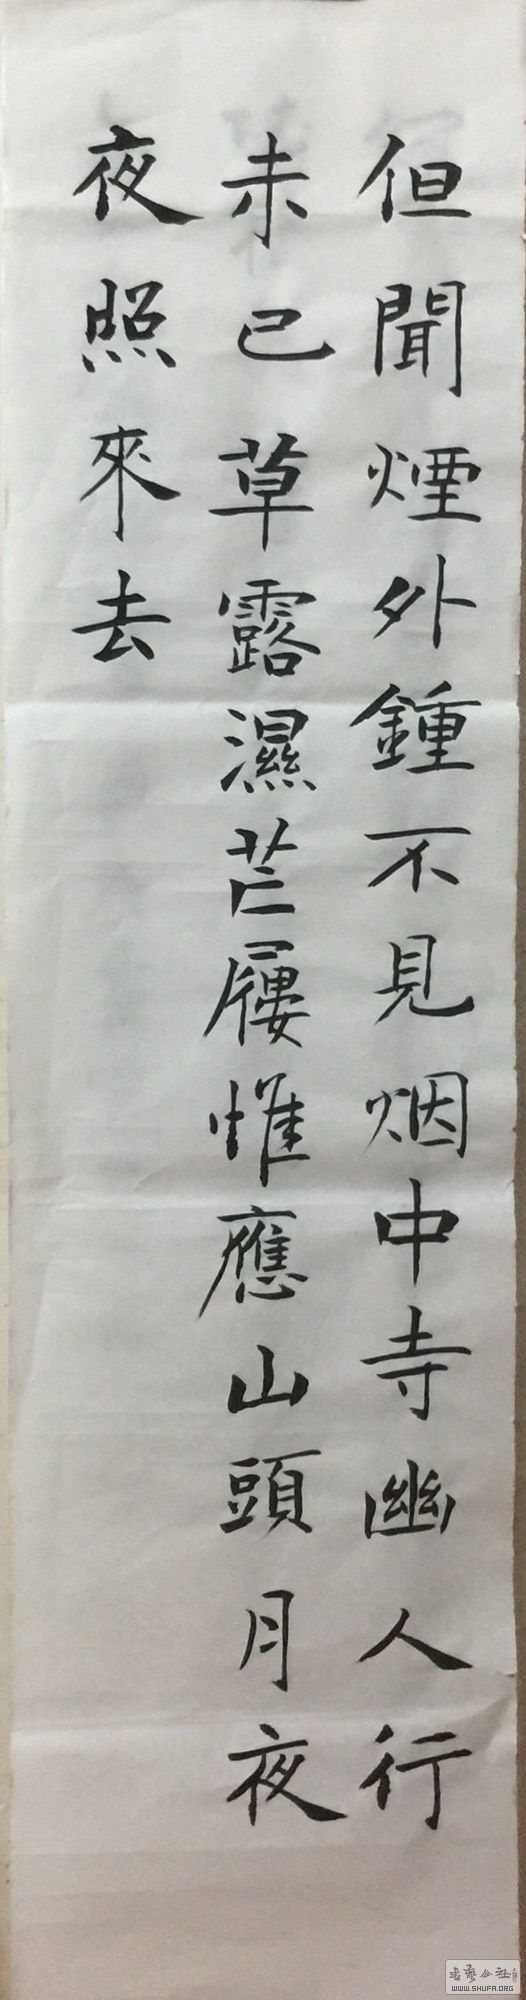 但聞煙外鍾不見烟中寺幽人行
未已草露濕芒屨惟應山頭月夜
夜照來去
WWW.SHUFA.ORG